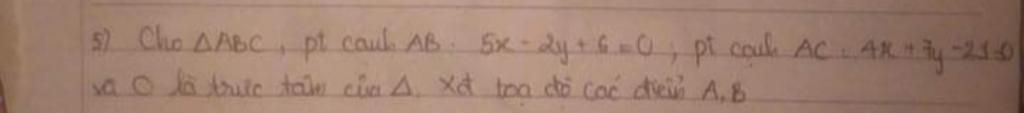 5) Cho ΔABC, pt cạnh AB: 5x - 2y + 6 = 0; pt cạnh AC: 4x + 7y - 21=0
và O là trực tâm của Δ. Xđ toạ độ các điểm A, B